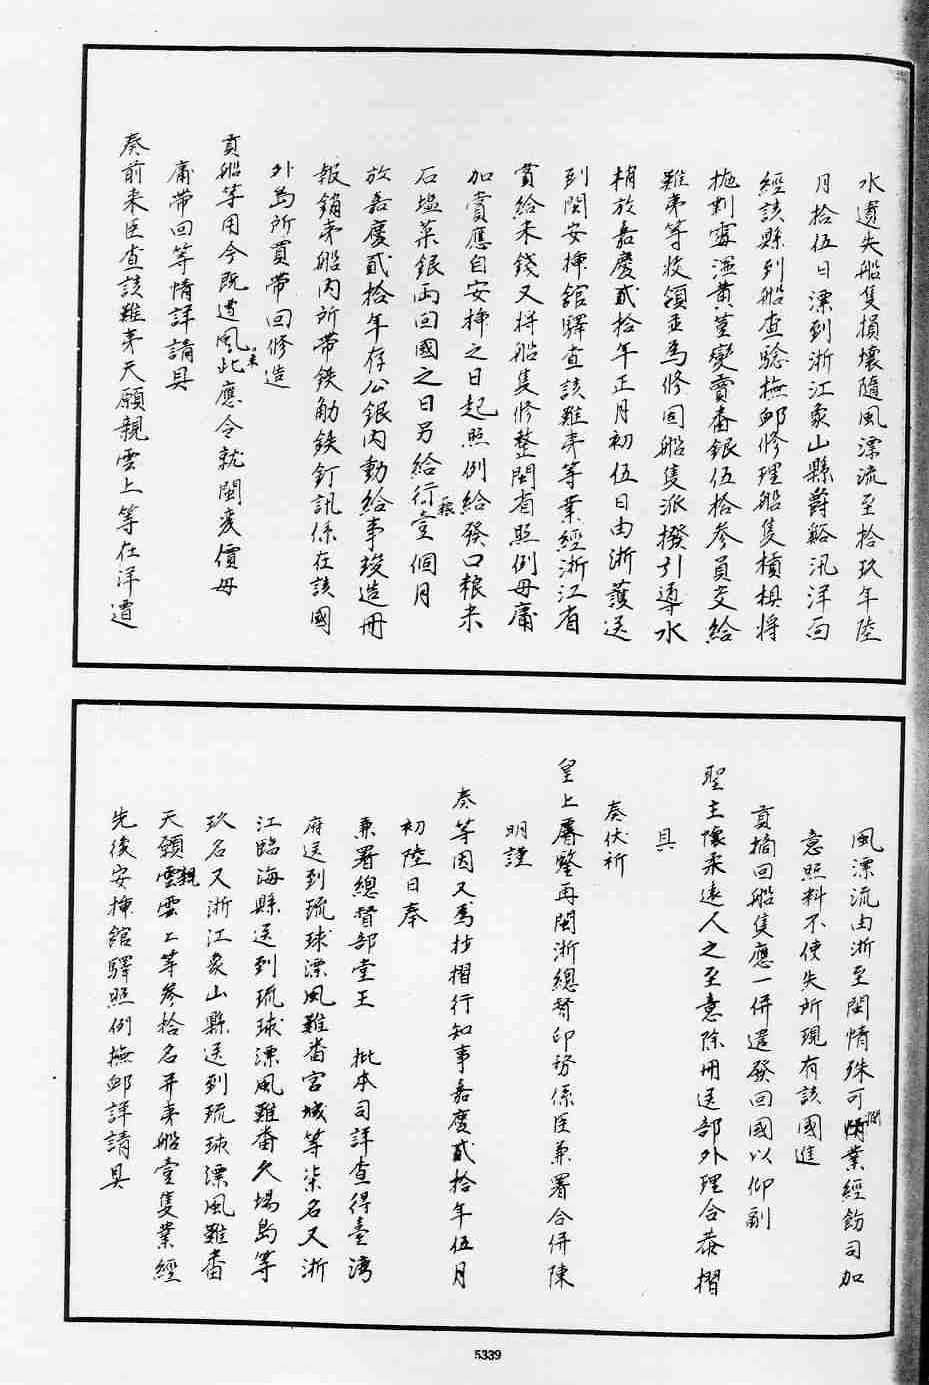 水遺失船隻損壞隨風漂流至拾玖年陸
月拾伍日漂到浙江象山縣爵谿汛洋面
經該縣到船查驗撫卹修理船隻槓椇將
拋剩霉溼黃薑變賣番銀伍拾參員交給
難夷等收領並為修固船隻派撥引導水
梢放嘉慶貳拾年正月初伍日由浙護送
到閩安插館驛查該難夷等業經浙江省
賞給米錢又將船隻修整閩省照例毋庸
加賞應自安插之日起照例給發口粮米
石塩菜銀両回國之日另給行粮壹個月
放嘉慶貳拾年存公銀內動給事竣造冊
報銷夷船內所帶鉄觔鉄釘訊係在該國
外島所買帶回修造
貢船等用今既遭風來此應令就閩変價毋
庸帶回等情詳請具
奏前來臣查該難夷天願親雲上等在洋遭
風漂流由浙至閩情殊可憫業經飭司加
意照料不使失所現有該國進
貢摘回船隻應一併遣發回國以仰副
聖主懷柔遠人之至意除冊送部外理合恭摺
具
奏伏祈
皇上睿鑒再閩浙總督印務係臣兼署合併陳
明謹
奏等因又為抄摺行知事嘉慶貳拾年伍月
初陸日奉
兼署總督部堂王　批本司詳查得臺灣
府送到琉球漂風難番宮城等柒名又浙
江臨海縣送到琉球漂風難番久場島等
玖名又浙江象山縣送到琉球漂風難番
天願親雲上等參拾名并夷船壹隻業經
先後安插館驛照例撫卹詳請具
5339